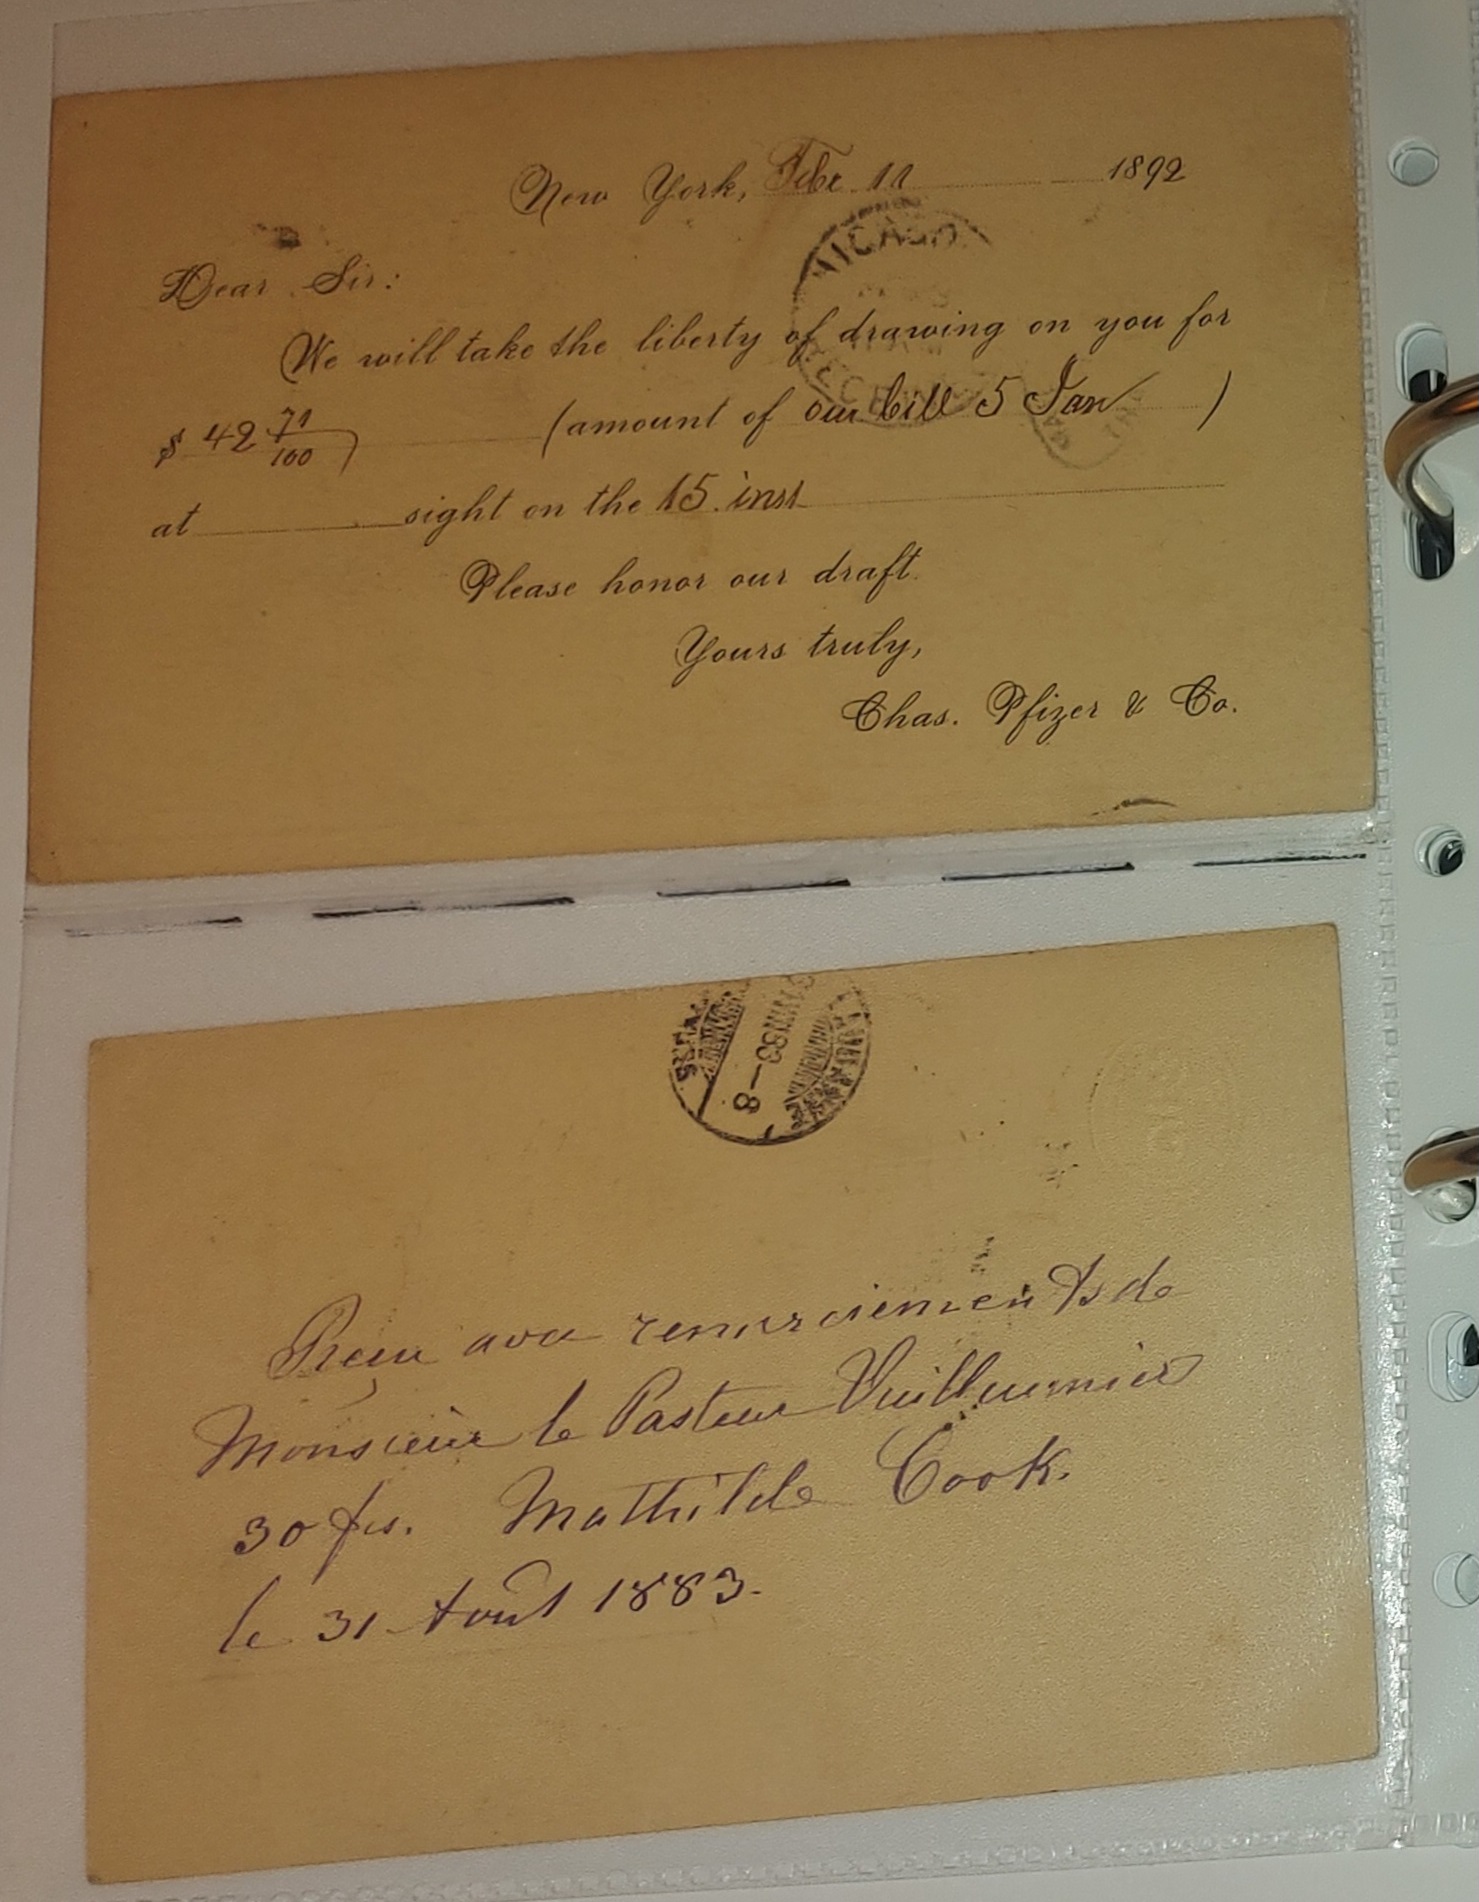 New York, Febr. 11 1892
Dear Sir:
We will take the liberty of drawing on you for
$ 42 71/100 (amount of our bill 5 Jan )
at sight on the 15. inst
Please honor our draft.
Yours truly,
Chas. Pfizer & Co.
RECEIVED
83-8
Reçu avec remerciements de
Monsieur le Pasteur Vuilleumier
30 frs. Mathilde Cook.
le 31 Août 1883.